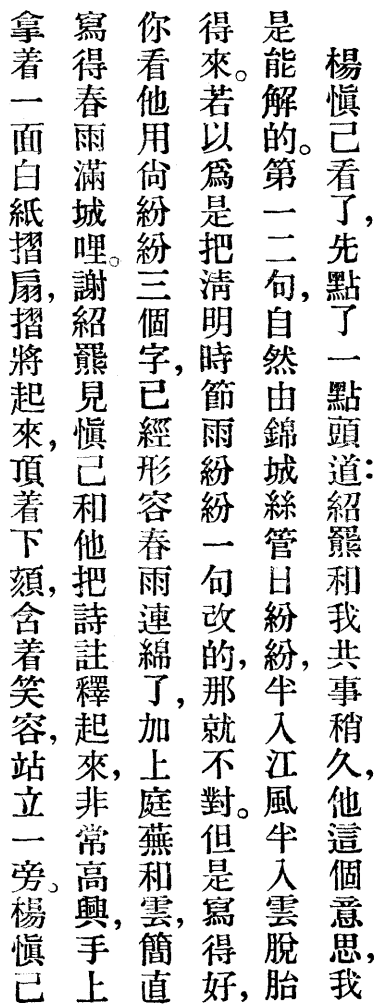 楊愼己看了，先點了一點頭道：紹羆和我共事稍久，他這個意思，我
是能解的。第一二句，自然由錦城絲管日紛紛，半入江風半入雲脫胎
得來。若以爲是把淸明時節雨紛紛一句改的，那就不對。但是寫得好，
你看他用尙紛紛三個字，已經形容春雨連綿了，加上庭蕪和雲，簡直
寫得春雨滿城哩。謝紹羆見愼己和他把詩註釋起來，非常高興，手上
拿着一面白紙摺扇，摺將起來，頂着下頦，含着笑容，站立一旁。楊愼己